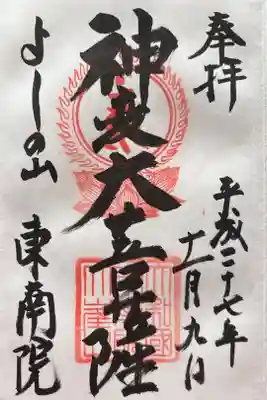 奉拝
平成二十七年
十一月九日
神変大菩薩
よしの山
東南院